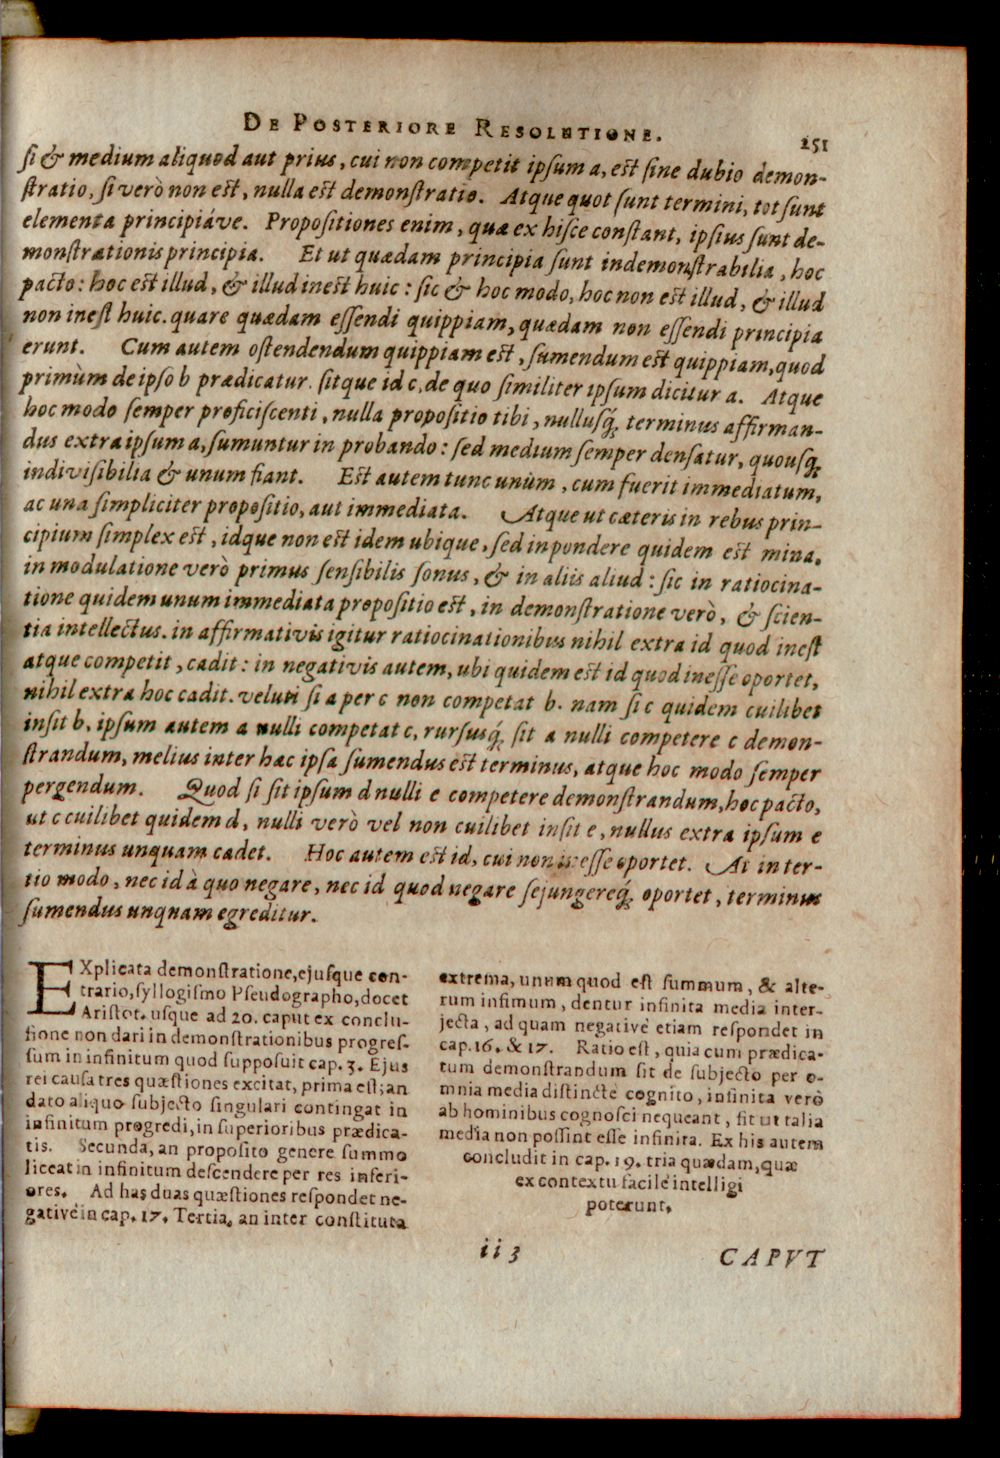 DE POSTERIORE RESOLUTIONE. 251
ſi & medium aliquod aut prius, cui non competit ipſum a, eſt ſine dubio demon-
ſtratio, ſi verò non eſt, nulla eſt demonſtratio. Atque quot ſunt termini, tot ſunt
elementa principiáve. Propoſitiones enim, quæ ex hiſce conſtant, ipſius ſunt de-
monſtrationis principia. Et ut quædam principia ſunt indemonſtrabilia, hoc
pacto: hoc eſt illud, & illud ineſt huic: ſic & hoc modo, hoc non eſt illud, & illud
non ineſt huic. quare quædam eſſendi quippiam, quædam non eſſendi principia
erunt. Cum autem oſtendendum quippiam eſt, ſumendum eſt quippiam, quod
primùm de ipſo b prædicatur. ſitque id c, de quo ſimiliter ipſum dicitur a. Atque
hoc modo ſemper proficiſcenti, nulla propoſitio tibi, nullusq́ terminus affirman-
dus extra ipſum a, ſumuntur in probando: ſed medium ſemper denſatur, quousq́
indiviſibilia & unum fiant. Eſt autem tunc unùm, cum fuerit immediatum,
ac una ſimpliciter propoſitio, aut immediata. Atque ut cæteris in rebus prin-
cipium ſimplex eſt, idque non eſt idem ubique, ſed in pondere quidem eſt mina,
in modulatione verò primus ſenſibilis ſonus, & in aliis aliud: ſic in ratiocina-
tione quidem unum immediata propoſitio eſt, in demonſtratione verò, & ſcien-
tia intellectus. in affirmativis igitur ratiocinationibus nihil extra id quod ineſt
atque competit, cadit: in negativis autem, ubi quidem eſt id quod ineſſe oportet,
nihil extra hoc cadit. veluti ſi a per c non competat b. nam ſi c quidem cuilibet
inſit b, ipſum autem a nulli competat c, rurſusq́ ſit a nulli competere c demon-
ſtrandum, melius inter hæc ipſa ſumendus eſt terminus, atque hoc modo ſemper
pergendum. Quod ſi ſit ipſum d nulli e competere demonſtrandum, hoc pacto,
ut c cuilibet quidem d, nulli verò vel non cuilibet inſit e, nullus extra ipſum e
terminus unquam cadet. Hoc autem eſt id, cui non ineſſe oportet. At in ter-
tio modo, nec id à quo negare, nec id quod negare ſejungereq́ oportet, terminus
ſumendus unquam egreditur.
EXplicata demonſtratione, ejuſque con-
trario, ſyllogiſmo Pſeudographo, docet
Ariſtot. uſque ad 20. caput ex concluſ-
ſione non dari in demonſtrationibus progreſ-
ſum in infinitum quod ſuppoſuit cap. 3. Ejus
rei cauſa tres quæſtiones excitat, prima eſt; an
dato aliquo ſubjecto ſingulari contingat in
infinitum progredi, in ſuperioribus prædica-
tis. Secunda, an propoſito genere ſummo
liceat in infinitum deſcendere per res inferi-
ores. Ad has duas quæſtiones reſpondet ne-
gativè in cap. 17. Tertia, an inter conſtituta
extrema, unum quod eſt ſummum, & alte-
rum infimum, dentur infinita media inter-
jecta, ad quam negativè etiam reſpondet in
cap. 16. & 17. Ratio eſt, quia cum prædica-
tum demonſtrandum ſit de ſubjecto per o-
mnia media diſtinctè cognito, infinita verò
ab hominibus cognoſci nequeant, fit ut talia
media non poſſint eſſe infinita. Ex his autem
concludit in cap. 19. tria quædam, quæ
ex contextu facilè intelligi
poterunt.
ii 3 CAPVT